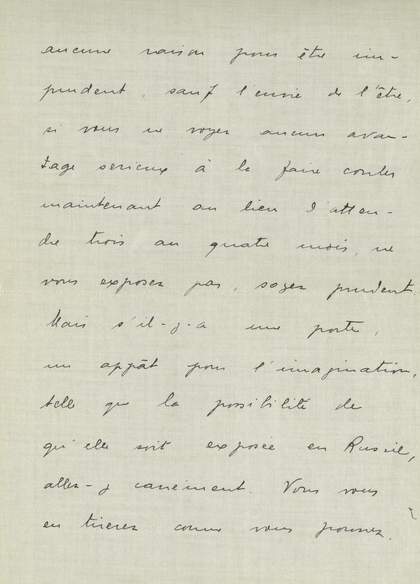 aucune raison pour être im-
prudent, sauf l'envie de l'être,
si vous ne voyez aucun avan-
tage serieux à la faire couler
maintenant au lieu d'atten-
dre trois au quatre mois, ne
vous exposez pas, soyez prudent.
Mais s'il-y-a une porte,
un appât pour l'imagination,
telle que la possibilité de
qu'elle soit exposée en Russie,
allez-y carrément. Vous vous
en tirerez comme vous pouvez.